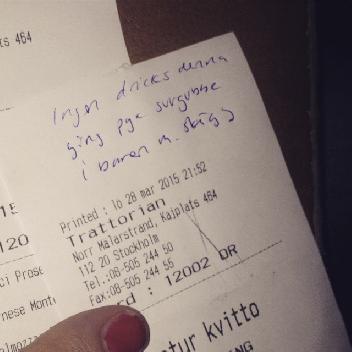 ts 464
Ingen dricks denna
gång pga surgubbe
i baren m. skägg
Printed : lö 28 mar 2015 21:52
Trattorian
Norr Mälarstrand, Kajplats 464
112 20 Stockholm
Tel.:08-505 244 50
Fax:08-505 244 55
rd : 12002 DR
tur kvitto
120
ci Prosc
nese Mont
almozz
NG